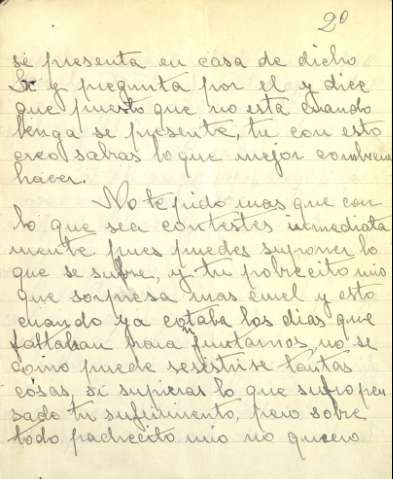 2º
se presenta en casa de dicho
Sr y pregunta por el y dice
que puesto que no está cuando
benga se presente, tu con esto
creo sabras lo que mejor combiene
hacer.
No te pido mas que con
lo que sea contestes inmediata
mente pues puedes suponer lo
que se sufre, y tu pobrecito mio
que sorpresa mas cruel y esto
cuando ya contaba los dias que
faltaban para juntarnos, no se
como puede resestirse tantas
cosas, si supieras lo que sufro pen
sado tu sufrimiento, pero sobre
todo padrecito mio no quiero